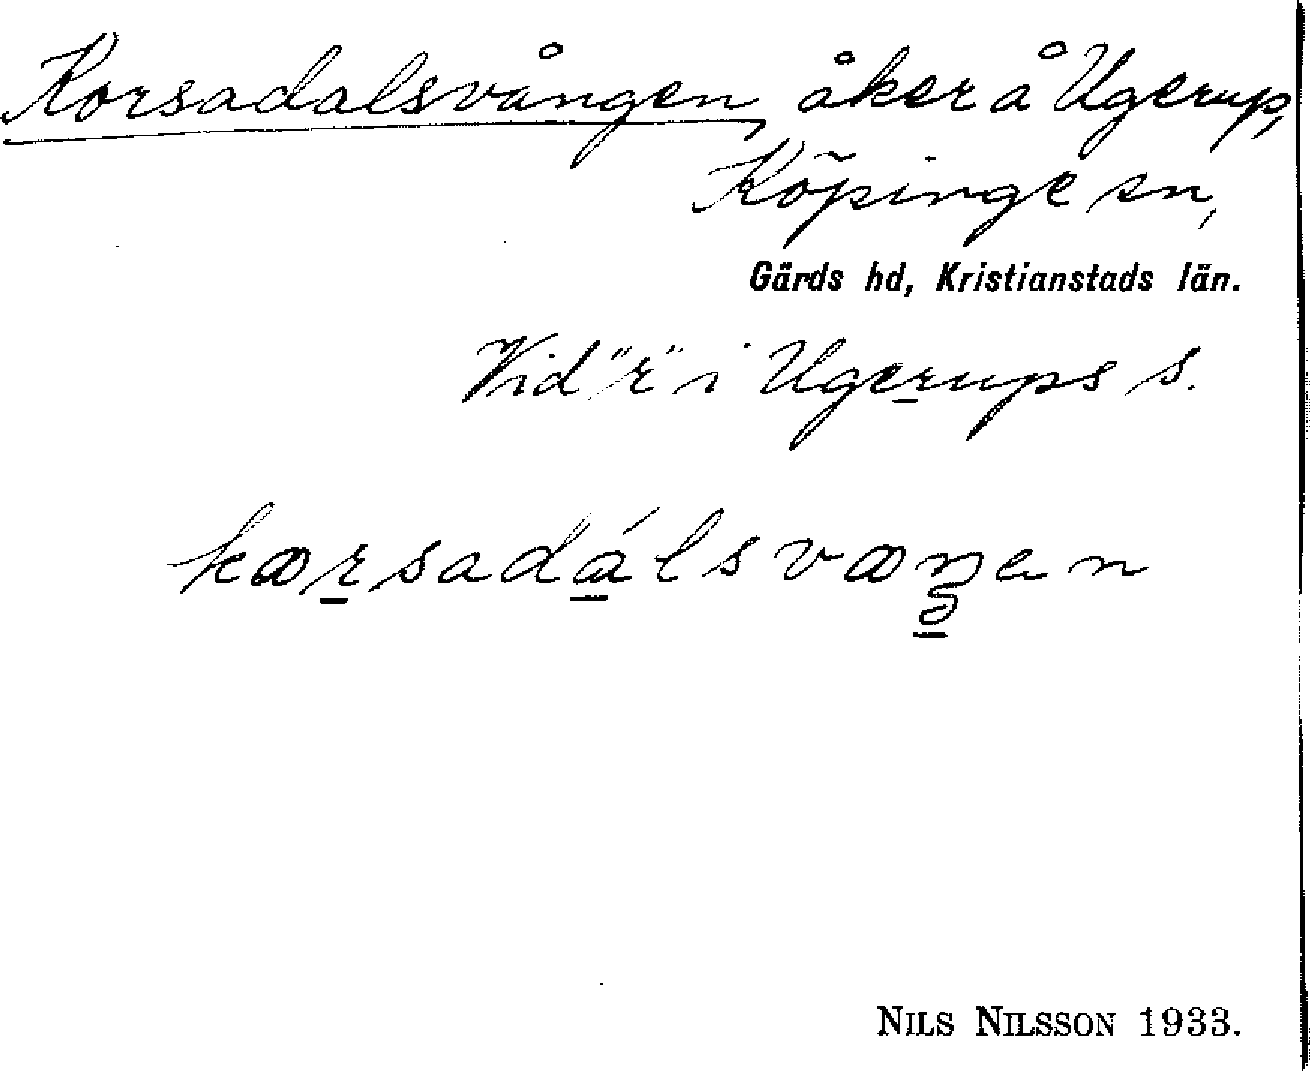 Korsadalsvången, åker å Ugerup,
Köpinge sn,
Gärds hd, Kristianstads län.
Vid "r" i Ugerups s.
NILS NILSSON 1933.